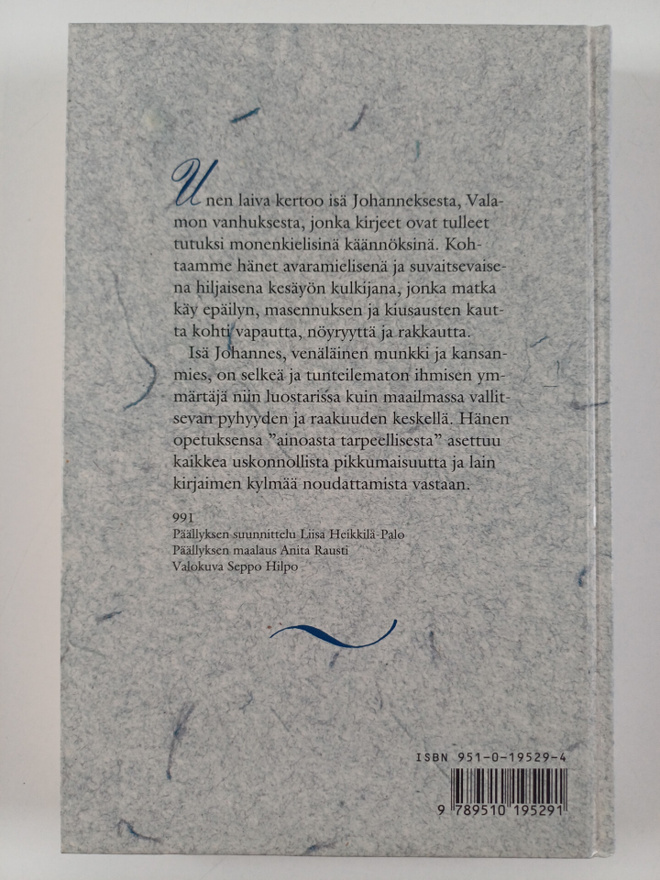 Unen laiva kertoo isä Johanneksesta, Vala-
mon vanhuksesta, jonka kirjeet ovat tulleet
tutuksi monenkielisinä käännöksinä. Koh-
taamme hänet avaramielisenä ja suvaitsevaise-
na hiljaisena kesäyön kulkijana, jonka matka
käy epäilyn, masennuksen ja kiusausten kaut-
ta kohti vapautta, nöyryyttä ja rakkautta.
Isä Johannes, venäläinen munkki ja kansan-
mies, on selkeä ja tunteilematon ihmisen ym-
märtäjä niin luostarissa kuin maailmassa vallit-
sevan pyhyyden ja raakuuden keskellä. Hänen
opetuksensa ”ainoasta tarpeellisesta” asettuu
kaikkea uskonnollista pikkumaisuutta ja lain
kirjaimen kylmää noudattamista vastaan.
991
Päällyksen suunnittelu Liisa Heikkilä-Palo
Päällyksen maalaus Anita Rausti
Valokuva Seppo Hilpo
ISBN 951-0-19529-4
9 789510 195291